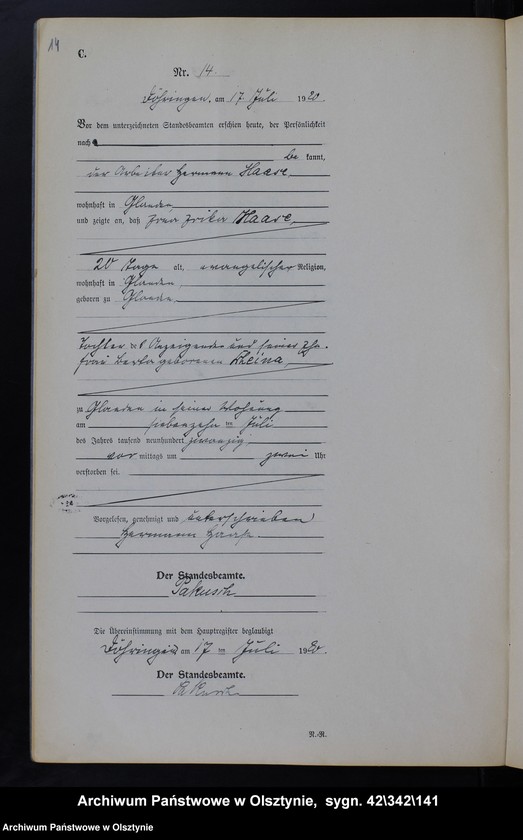 14
C.
Nr. 14.
Döhringen, am 17 Juli 1920.
Vor dem unterzeichneten Standesbeamten erschien heute, der Persönlichkeit
nach
be kannt,
der Arbeiter Hermann Haase,
wohnhaft in Glanden
und zeigte an, daß Haase,
20 Tage alt, evangelischer Religion,
wohnhaft in Glanden
geboren zu Glanden
Tochter des Anzeigenden und seiner Ehe-
frau Berta geborenen
zu Glanden in seiner Wohnung
am siebenzehn ten Juli
des Jahres tausend neunhundert zwanzig
vor mittags um zwei Uhr
verstorben sei.
Vorgelesen, genehmigt und unterschrieben
Hermann Haase.
Der Standesbeamte.
Pakusch
Die Übereinstimmung mit dem Hauptregister beglaubigt
Döhringen am 17 ten Juli 1920.
Der Standesbeamte.
Pakusch
N.-R.
Archiwum Państwowe w Olsztynie, sygn. 42\342\141
Archiwum Państwowe w Olsztynie